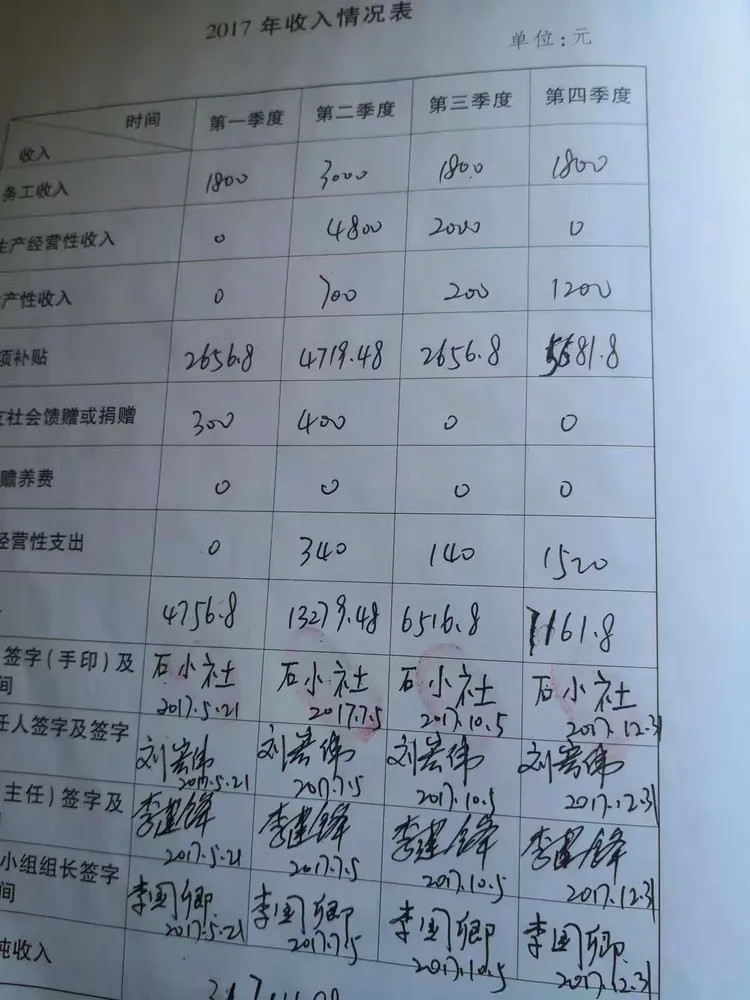 2017年收入情况表
单位:元
时间 第一季度 第二季度 第三季度 第四季度
收入
务工收入 1800 3000 1800 1800
生产经营性收入 0 4800 2000 0
产性收入 0 700 200 1200
项补贴 2656.8 4719.48 2656.8 5681.8
社会馈赠或捐赠 300 400 0 0
赡养费 0 0 0 0
经营性支出 0 340 140 1520
4756.8 13279.48 6516.8 7161.8
签字(手印)及 石小社 石小社 石小社 石小社
间 2017.5.21 2017.7.5 2017.10.5 2017.12.31
任人签字及签字 刘岩伟 刘岩伟 刘岩伟 刘岩伟
2017.5.21 2017.7.5 2017.10.5 2017.12.31
主任)签字及 李建锋 李建锋 李建锋 李建锋
2017.5.21 2017.7.5 2017.10.5 2017.12.31
小组组长签字 李国卿 李国卿 李国卿 李国卿
间 2017.5.21 2017.7.5 2017.10.5 2017.12.31
纯收入